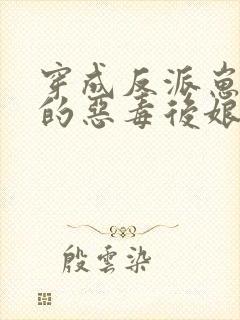 穿成反派崽
的惡毒後娘
殷雲染